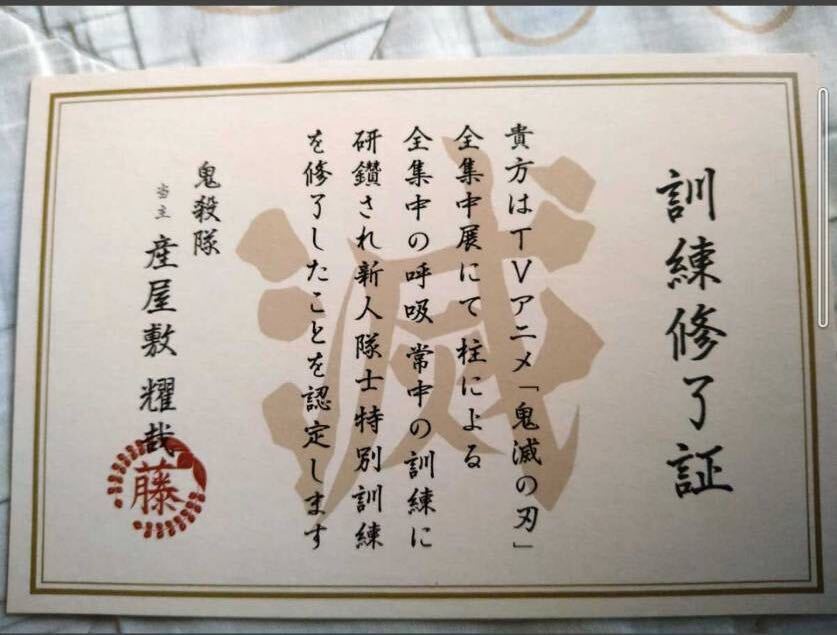 訓練修了証
貴方はTVアニメ「鬼滅の刃」
全集中展にて柱による
全集中の呼吸 常中の訓練に
研鑽され新人隊士特別訓練
を修了したことを認定します
鬼殺隊
当主 産屋敷 耀哉
藤
滅